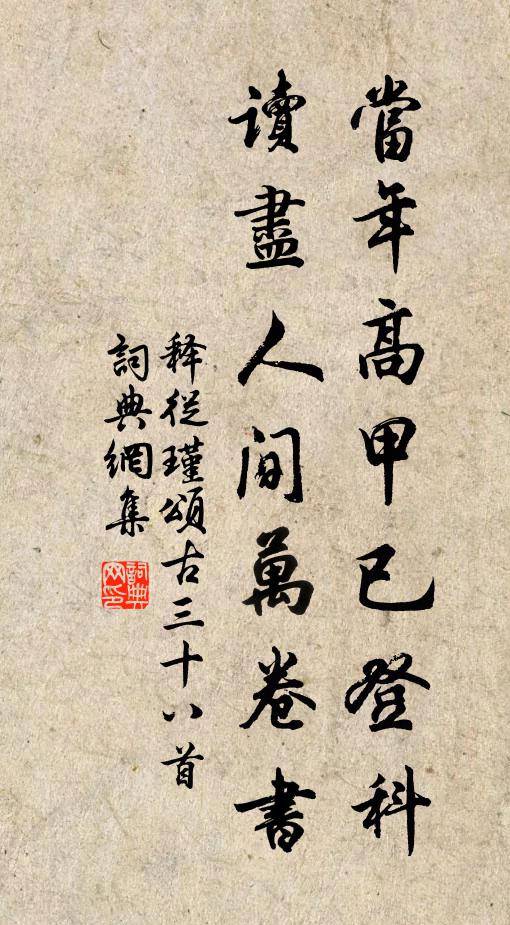 當年高甲已登科
讀盡人间萬卷書
释從瑾頌古三十八首
詞典網集
詞典网印